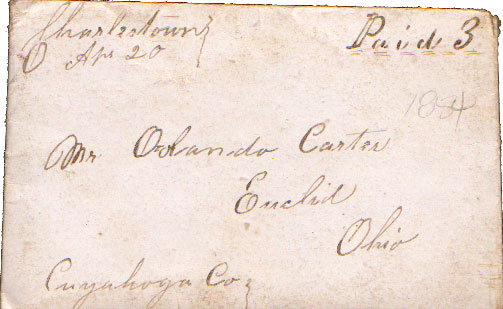 Charlestown
O Apr 20
Paid 3
1854
Mr Orlando Carter
Euclid
Ohio
Cuyahoga Co;